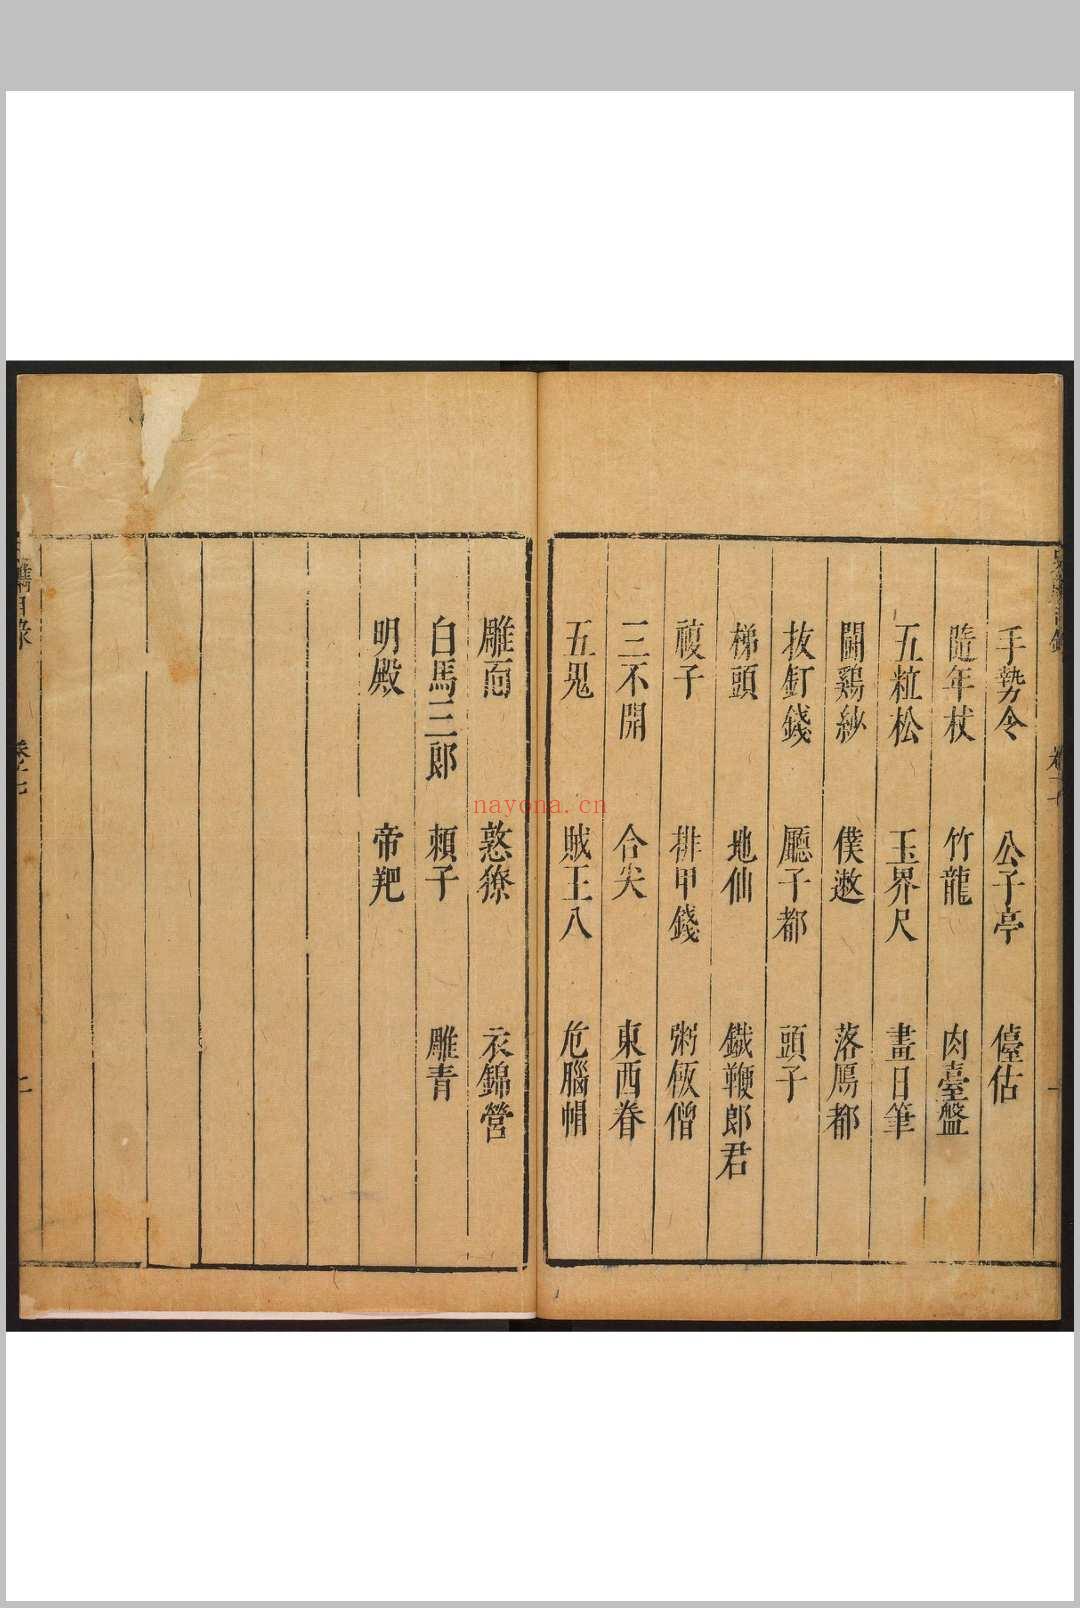 手勢令 公子亭 儓估
隨年杖 竹龍 肉臺盤
五粒松 玉界尺 畫日筆
鬪鷄紗 僕遬 落鴈都
拔釘錢 廳子都 頭子
梯頭 地仙 鐵鞭郎君
複子 排甲錢 粥飯僧
三不開 合尖 東西眷
五鬼 賊王八 危腦帽
雕面 憨獠 衣錦營
白馬三郎 賴子 雕青
明殿 帝羓
目錄
卷之七
nayona.cn